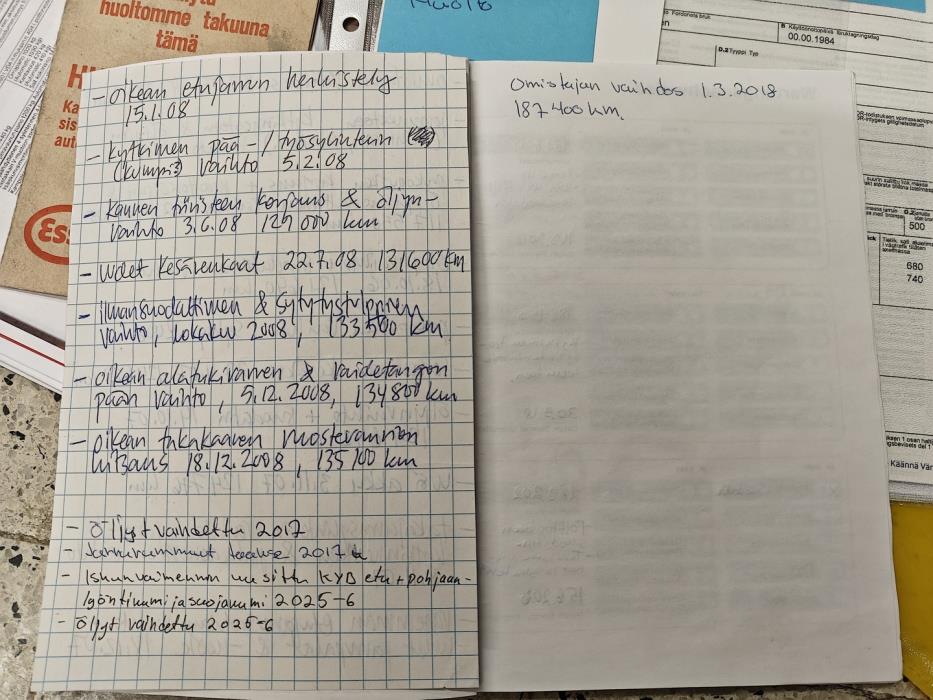 huoltomme takuuna
tämä
H
Ka
sis
aut
Es
- oikean etujarrun herkistely
15.1.08
- kytkimen pää-/työsylinterin
(kumpi?) vaihto 5.2.08
- kannen tiivisteen korjaus & öljyn-
vaihto 3.6.08 129 000 km
- uudet kesärenkaat 22.7.08 131600 km
- ilmansuodattimen & sytytystulppien
vaihto, lokakuu 2008, 133 500 km
- oikean alatukivarren & raidetangon
pään vaihto, 5.12.2008, 134 800 km
- oikean takakaaren ruostevaurion
hitsaus 18.12.2008, 135 100 km
- Öljyt vaihdettu 2017
- Jarrurummut taakse 2017
- Iskunvaimennin uusittu KYB etu + pohjaan-
lyöntikumi ja suojakumi 2025-6
- Öljyt vaihdettu 2025-6
Omistajan vaihdos 1.3.2018
187 400 km.
B. Käyttöönottopäivä
00.00.1984
D.2 Tyyppi Typ
500
680
740
Käännä Vär